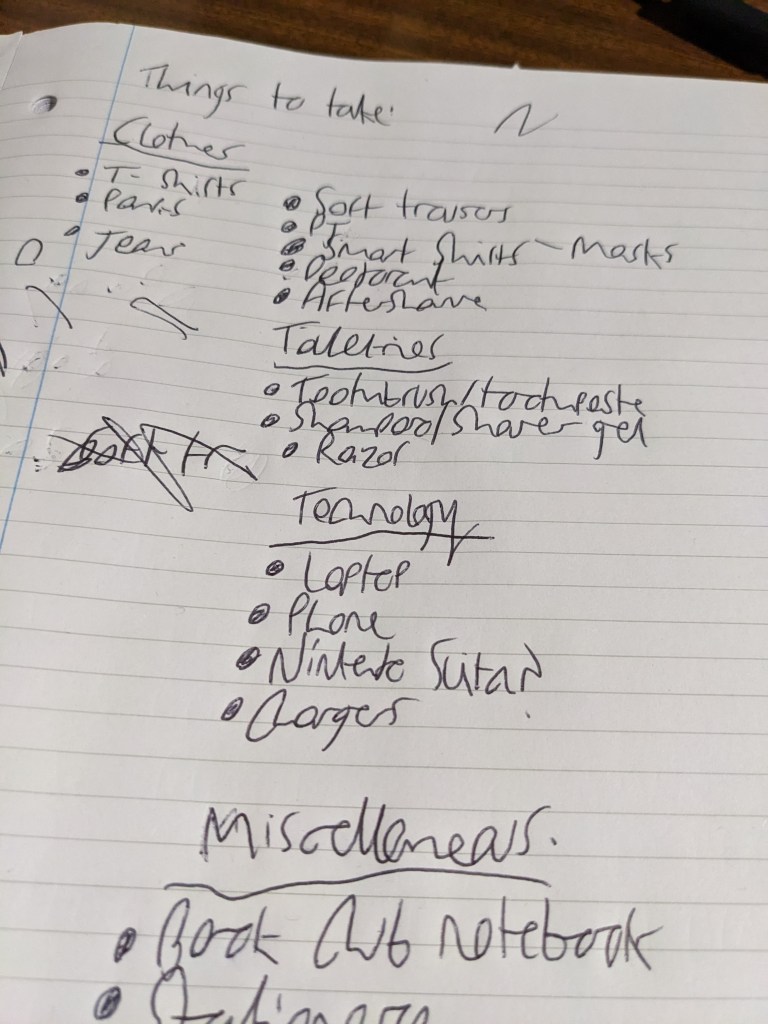 Things to take:
Clothes
• T-Shirts
• Pants
• Jeans
• Soft trousers
• PJ
• Smart Shirts - Masks
• Deodorant
• Aftershave
Toiletries
• Toothbrush/toothpaste
• Shampoo/Shaver gel
• Razor
Technology
• Laptop
• Phone
• Nintendo Switch
• Chargers
Miscellaneous.
• Book Club notebook
• Stationary